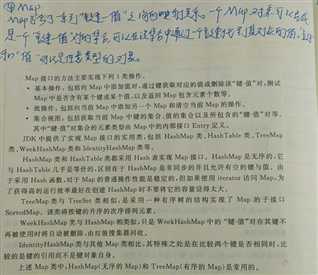 ④Map
Map 接口的方法主要实现下列 3 类操作。
• 基本操作：包括向 Map 中添加值对，通过键获取对应的值或删除该"键-值"对，测试
Map 中是否含有某个键或某个值，以及返回 Map 包含元素个数等。
• 批操作：包括向当前 Map 中添加另一个 Map 和清空当前 Map 的操作。
• 集合视图：包括获取当前 Map 中键的集合、值的集合以及所包含的"键-值"对等。
其中"键-值"对集合的元素类型由 Map 中的内部接口 Entry 定义。
JDK 中提供了实现 Map 接口的实用类，包括 HashMap 类、HashTable 类、TreeMap
类、WeekHashMap 类和 IdentityHashMap 类等。
HashMap 类和 HashTable 类都采用 Hash 表实现 Map 接口。HashMap 是无序的，它
与 HashTable 几乎是等价的，区别在于 HashMap 是非同步的并且允许有空的键与值。由
于采用 Hash 函数，对于 Map 的普通操作性能是稳定的，但如果使用 iterator 访问 Map，为
了获得高的运行效率最好在创建 HashMap 时不要将它的容量设得太大。
TreeMap 类与 TreeSet 类相似，是采用一种有序树的结构实现了 Map 的子接口
SortedMap。该类将按键的升序的次序排列元素。
WeekHashMap 类与 HashMap 类相似，只是 WeekHashMap 中的"键-值"对在其键不
再被使用时将自动被删除，由垃圾搜集器回收。
IdentityHashMap 类与其他 Map 类相比，其特殊之处是在比较两个键是否相同时，比
较的是键的引用而不是键对象自身。
上述 Map 类中，HashMap(无序的 Map)和 TreeMap(有序的 Map)是常用的。